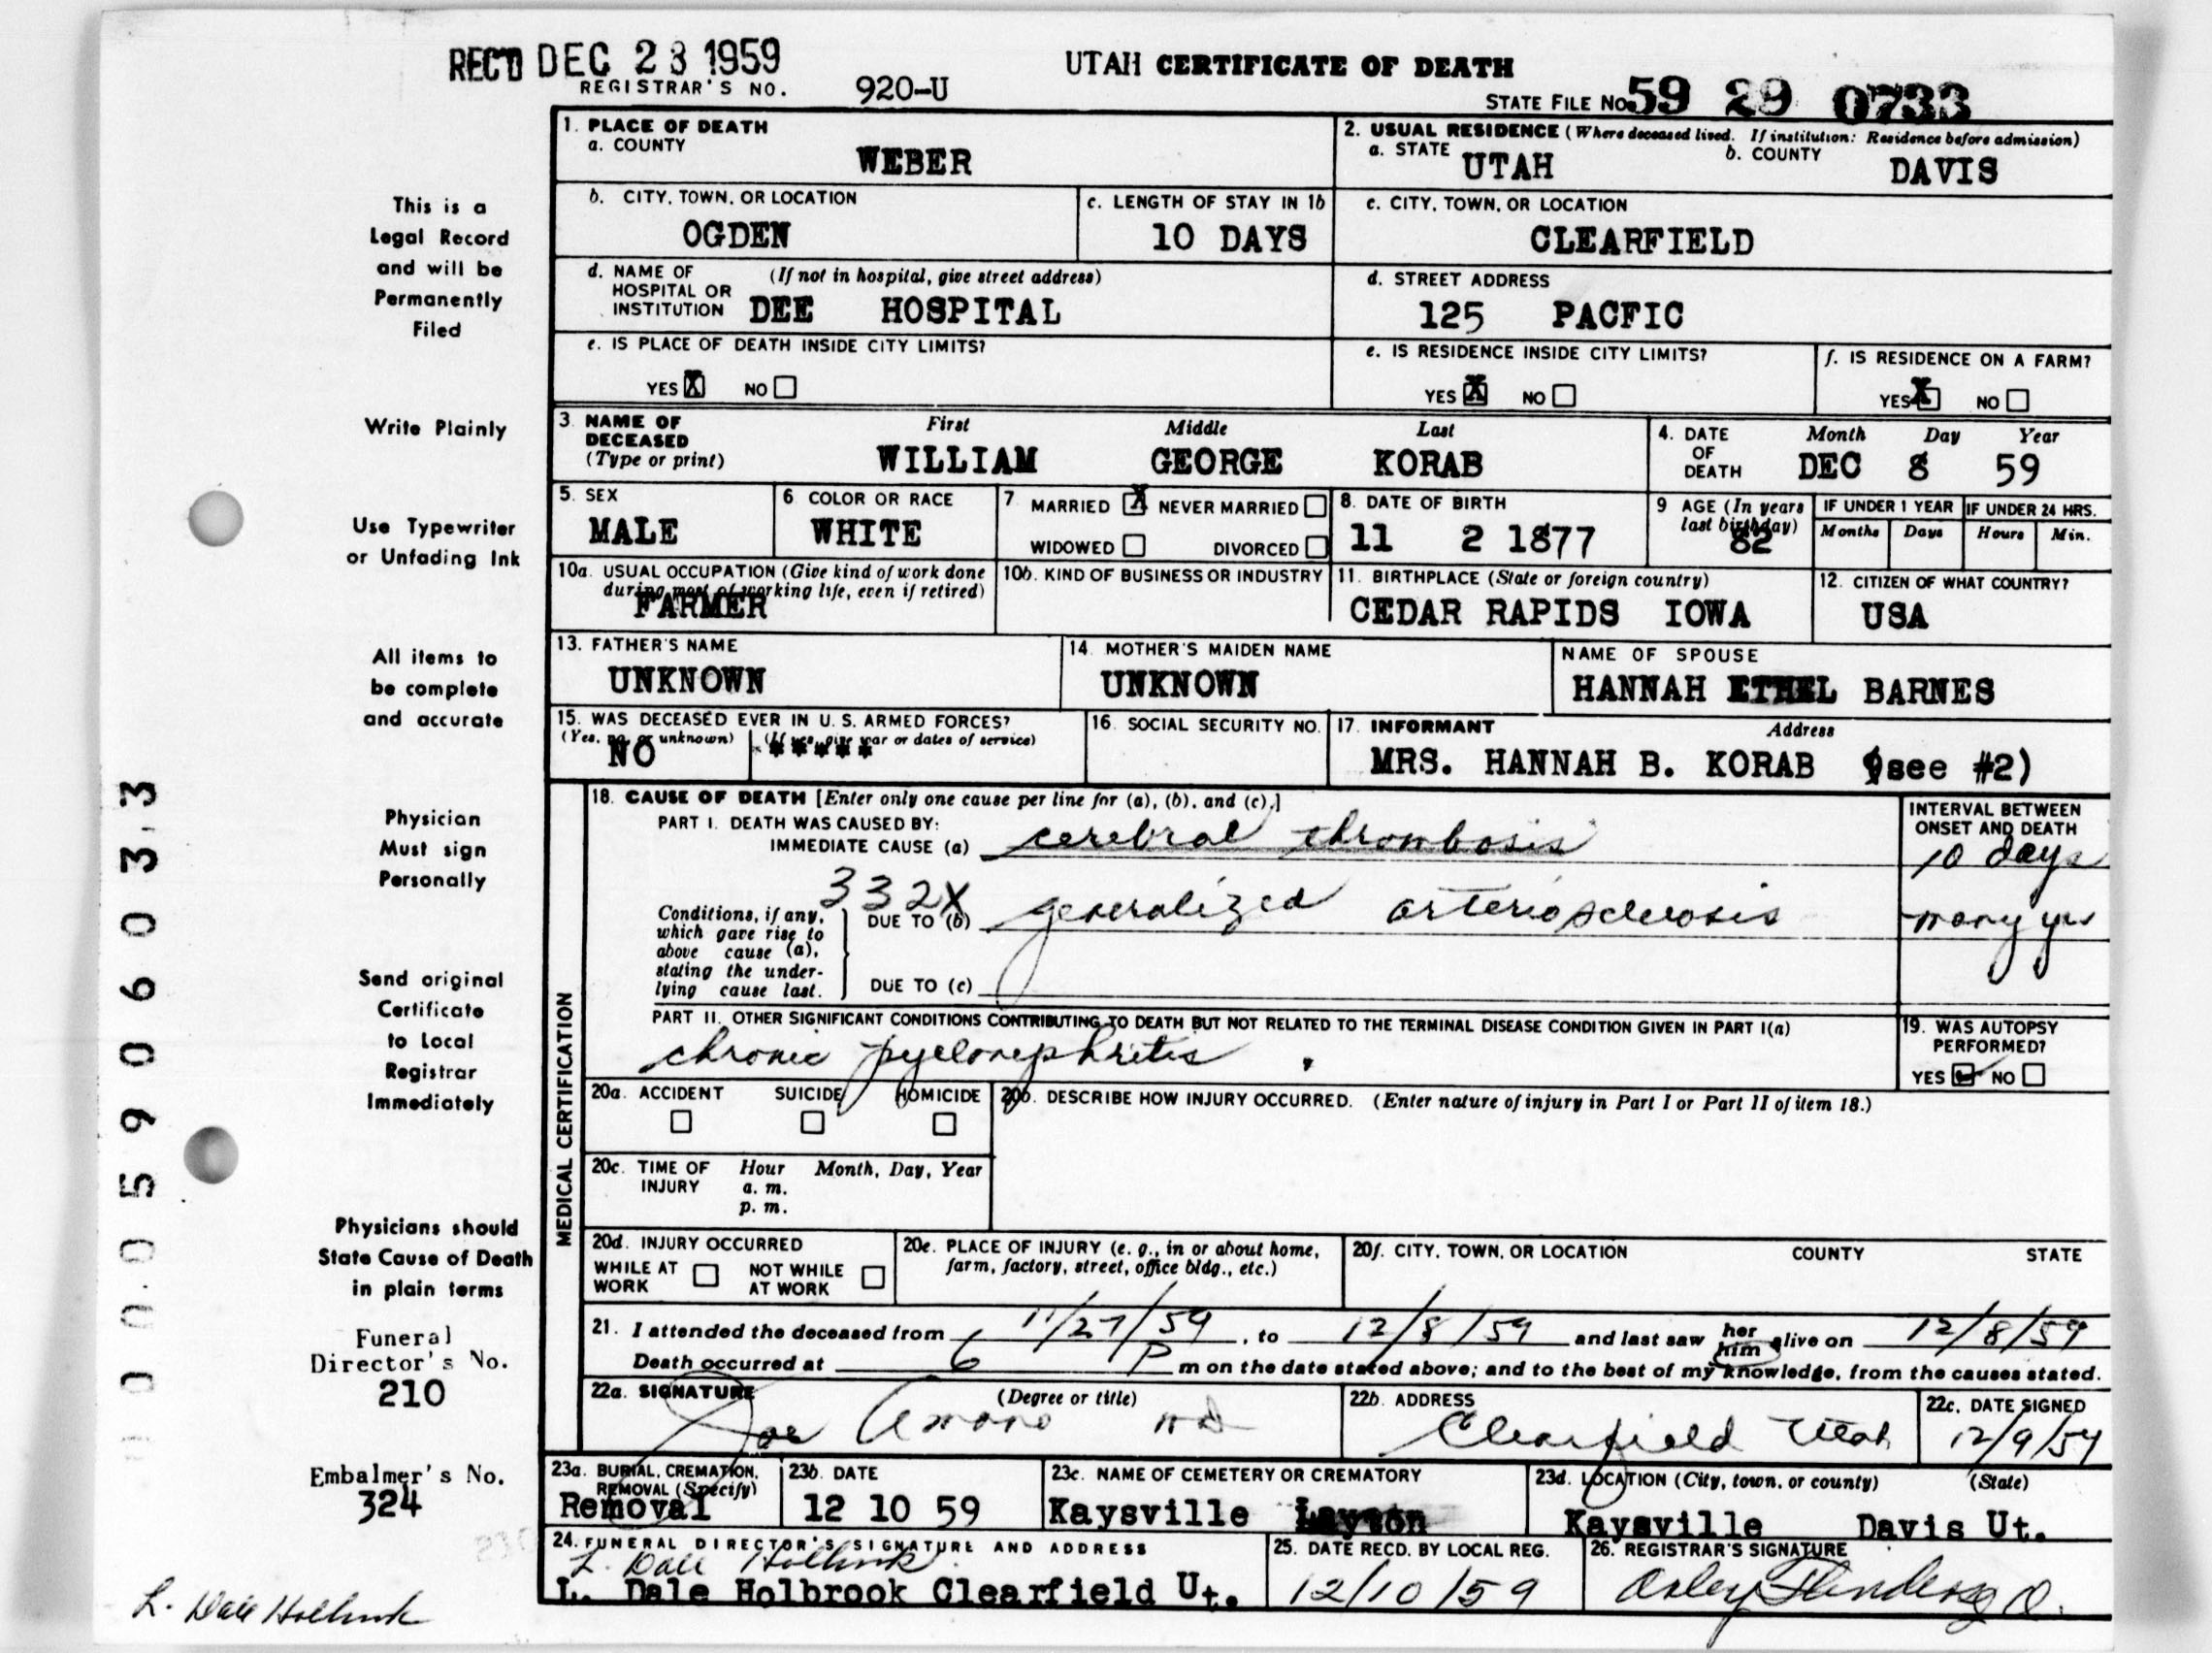 REC'D DEC 23 1959
UTAH CERTIFICATE OF DEATH
REGISTRAR'S NO. 920-U
STATE FILE No. 59 29 0733
1. PLACE OF DEATH
a. COUNTY
WEBER
2. USUAL RESIDENCE (Where deceased lived. If institution: Residence before admission)
a. STATE UTAH b. COUNTY DAVIS
b. CITY, TOWN, OR LOCATION
OGDEN
c. LENGTH OF STAY IN 1b
10 DAYS
c. CITY, TOWN, OR LOCATION
CLEARFIELD
d. NAME OF HOSPITAL OR INSTITUTION (If not in hospital, give street address)
DEE HOSPITAL
d. STREET ADDRESS
125 PACFIC
e. IS PLACE OF DEATH INSIDE CITY LIMITS?
YES X NO
e. IS RESIDENCE INSIDE CITY LIMITS?
YES X NO
f. IS RESIDENCE ON A FARM?
YES X NO
3. NAME OF DECEASED (Type or print)
First Middle Last
WILLIAM GEORGE KORAB
4. DATE OF DEATH
Month Day Year
DEC 8 59
5. SEX
MALE
6 COLOR OR RACE
WHITE
7. MARRIED X NEVER MARRIED
WIDOWED DIVORCED
8. DATE OF BIRTH
11 2 1877
9 AGE (In years last birthday)
82
IF UNDER 1 YEAR
Months Days
IF UNDER 24 HRS.
Hours Min.
10a. USUAL OCCUPATION (Give kind of work done during most of working life, even if retired)
FARMER
10b. KIND OF BUSINESS OR INDUSTRY
11. BIRTHPLACE (State or foreign country)
CEDAR RAPIDS IOWA
12. CITIZEN OF WHAT COUNTRY?
USA
13. FATHER'S NAME
UNKNOWN
14. MOTHER'S MAIDEN NAME
UNKNOWN
NAME OF SPOUSE
HANNAH ETHEL BARNES
15. WAS DECEASED EVER IN U. S. ARMED FORCES?
(Yes, no, or unknown) (If yes, give war or dates of service)
NO *****
16. SOCIAL SECURITY NO.
17. INFORMANT Address
MRS. HANNAH B. KORAB (see #2)
MEDICAL CERTIFICATION
18. CAUSE OF DEATH [Enter only one cause per line for (a), (b), and (c).]
PART I. DEATH WAS CAUSED BY:
IMMEDIATE CAUSE (a) cerebral thrombosis
INTERVAL BETWEEN ONSET AND DEATH
10 days
332X
Conditions, if any, which gave rise to above cause (a), stating the underlying cause last.
DUE TO (b) generalized arteriosclerosis
many yrs
DUE TO (c)
PART II. OTHER SIGNIFICANT CONDITIONS CONTRIBUTING TO DEATH BUT NOT RELATED TO THE TERMINAL DISEASE CONDITION GIVEN IN PART I(a)
chronic pyelonephritis
19. WAS AUTOPSY PERFORMED?
YES NO
20a. ACCIDENT SUICIDE HOMICIDE
20b. DESCRIBE HOW INJURY OCCURRED. (Enter nature of injury in Part I or Part II of item 18.)
20c. TIME OF INJURY Hour Month, Day, Year
a. m.
p. m.
20d. INJURY OCCURRED
WHILE AT WORK NOT WHILE AT WORK
20e. PLACE OF INJURY (e. g., in or about home, farm, factory, street, office bldg., etc.)
20f. CITY, TOWN, OR LOCATION COUNTY STATE
21. I attended the deceased from 11/27/59, to 12/8/59 and last saw her him alive on 12/8/59
Death occurred at 6 P m on the date stated above; and to the best of my knowledge, from the causes stated.
22a. SIGNATURE (Degree or title)
Joe Amano MD
22b. ADDRESS
Clearfield Utah
22c. DATE SIGNED
12/9/59
23a. BURIAL, CREMATION, REMOVAL (Specify)
Removal
23b. DATE
12 10 59
23c. NAME OF CEMETERY OR CREMATORY
Kaysville Layton
23d. LOCATION (City, town, or county) (State)
Kaysville Davis Ut.
24. FUNERAL DIRECTOR'S SIGNATURE AND ADDRESS
L. Dale Holbrook
L. Dale Holbrook Clearfield Ut.
25. DATE RECD. BY LOCAL REG.
12/10/59
26. REGISTRAR'S SIGNATURE
This is a
Legal Record
and will be
Permanently
Filed
Write Plainly
Use Typewriter
or Unfading Ink
All items to
be complete
and accurate
Physician
Must sign
Personally
Send original
Certificate
to Local
Registrar
Immediately
Physicians should
State Cause of Death
in plain terms
Funeral
Director's No.
210
Embalmer's No.
324
L. Dale Holbrook